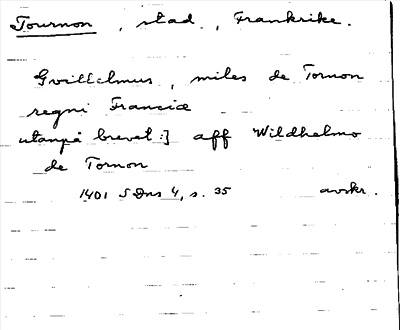 Tournon, stad, Frankrike.
Guillelmus, miles de Tornon
regni Franciæ
utanpå brevet:] aff Wildhelmo
de Tornon
1401 SDns 4, s. 35 avskr.